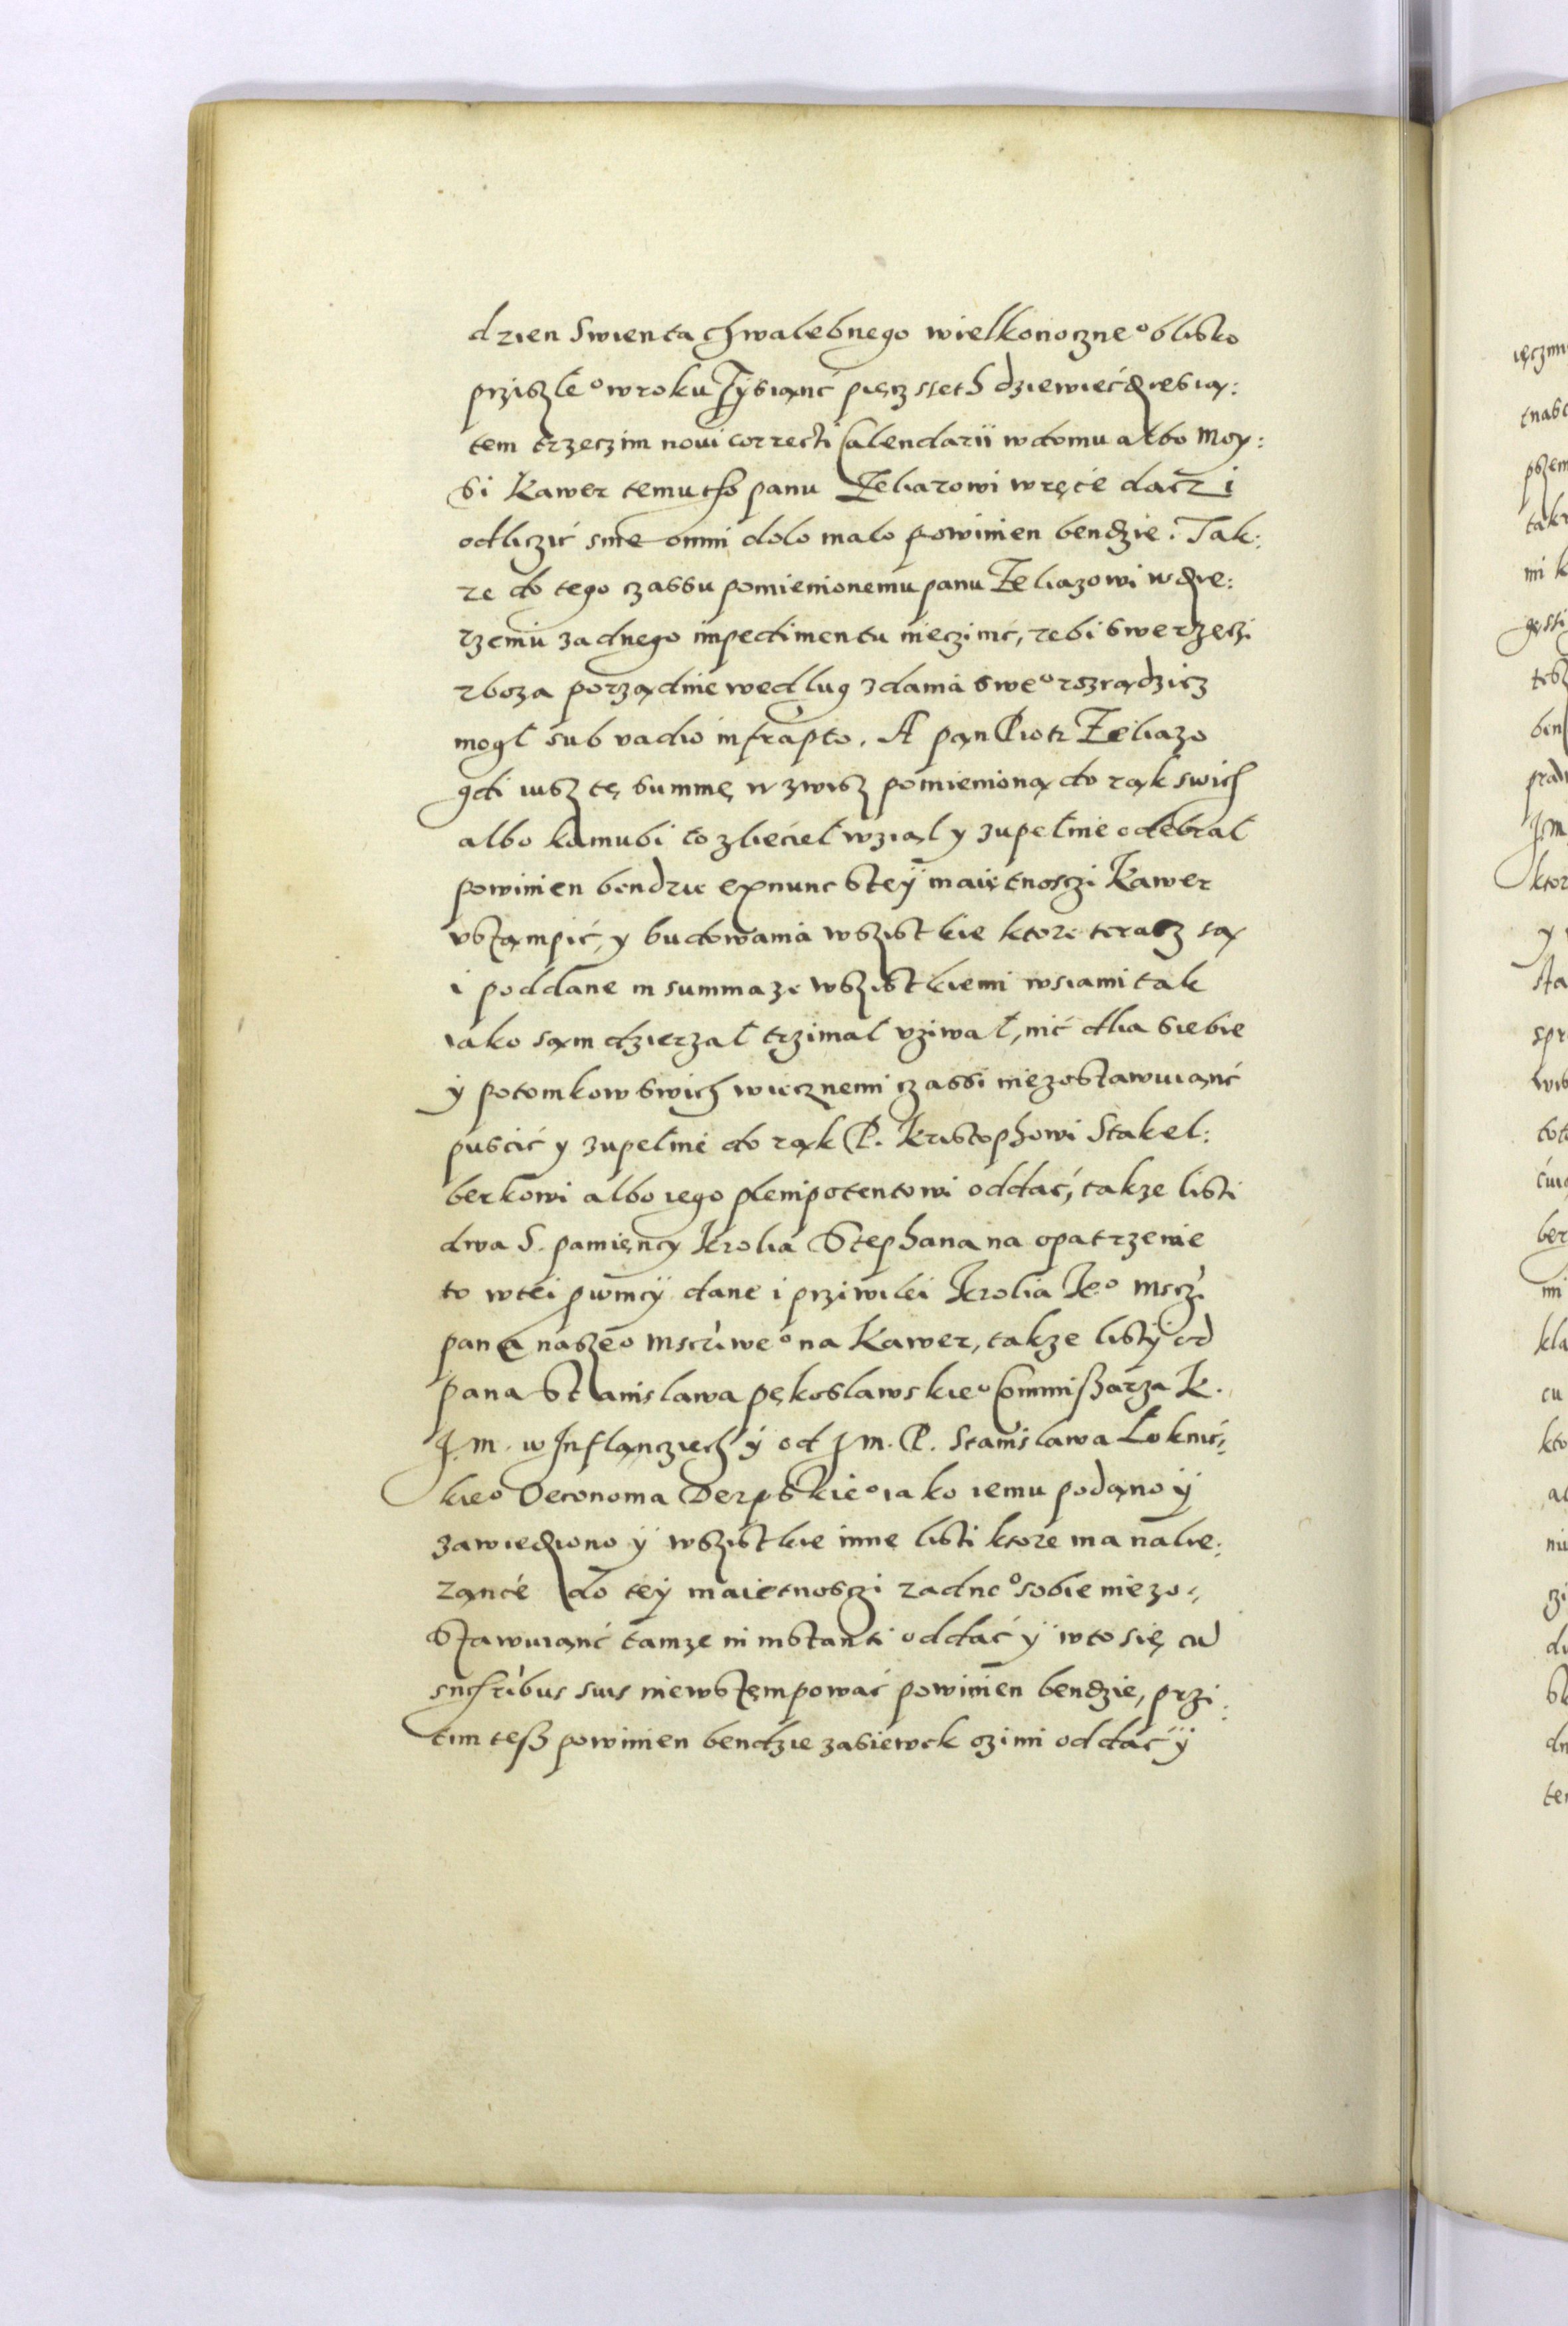 dzien Swienta chwalebnego wielkonoczne° blisko
prziszłe° w roku Tysiąnć pięcz sseth dziewięćdziesią:
tem trzeczim noui correcti Calendarii w domu albo Moy:
si Kawer temusz panu Żeliazowi w ręće dacz i
odliczić sine omni dolo malo powinien bendzie. Tak:
ze do tego czassu pomienionemu panu Żeliazowi w dzie:
rzeniu zadnego impedimentu nieczinić, zebi swe rzęczi
zboza porządnie według zdania swe° rozrądzicz
mogł sub vadio infrapto. A pąn Piotr Żeliazo
gdi iusz tę summę w zwisz pomienioną do rąk swich
albo kamusi to zliećieł wziął y zupełnie odebrał
powinien bendzie exnunc s tey maiętnosczi Kawer
vstąmpić, y budowania wszistkie ktore terasz są
i poddane in summa ze wszistkiemi wsiami tak
iako sąm dzierzał trzimał vziwał, nić dlia siebie
y potomkow swich wiecznemi czassi niezostawuiąnć
puscić y zupełnie do rąk P. Kristophowi Stakel:
berkowi albo iego plenipotentowi oddać, takze listi
dwa S. pamięncy Krolia Stephana na opatrzenie
to w tei pwincij dane i prziwilei Krolia Ke° Msczi
pana nasze° Mscziwe° na Kawer, takze listy od
pana Stanislawa pękoslawskie° Commissarza K.
J.m. w Infląnczięch y od Jm. P. Stanislawa Łoknić:
kie° Oeconoma Derpskie° iako iemu podąno y
zawiedziono y wszistkie inne listi ktore ma nalie:
ząnće do tey maietnosczi zadne° sobie niezo:
stawuiąnć tamze in instanti oddać y w to się cu
sucſribus suis niewstęmpować powinien bendzie, przi:
tim tesz powinien bendzie zasiewek ozimi oddać y